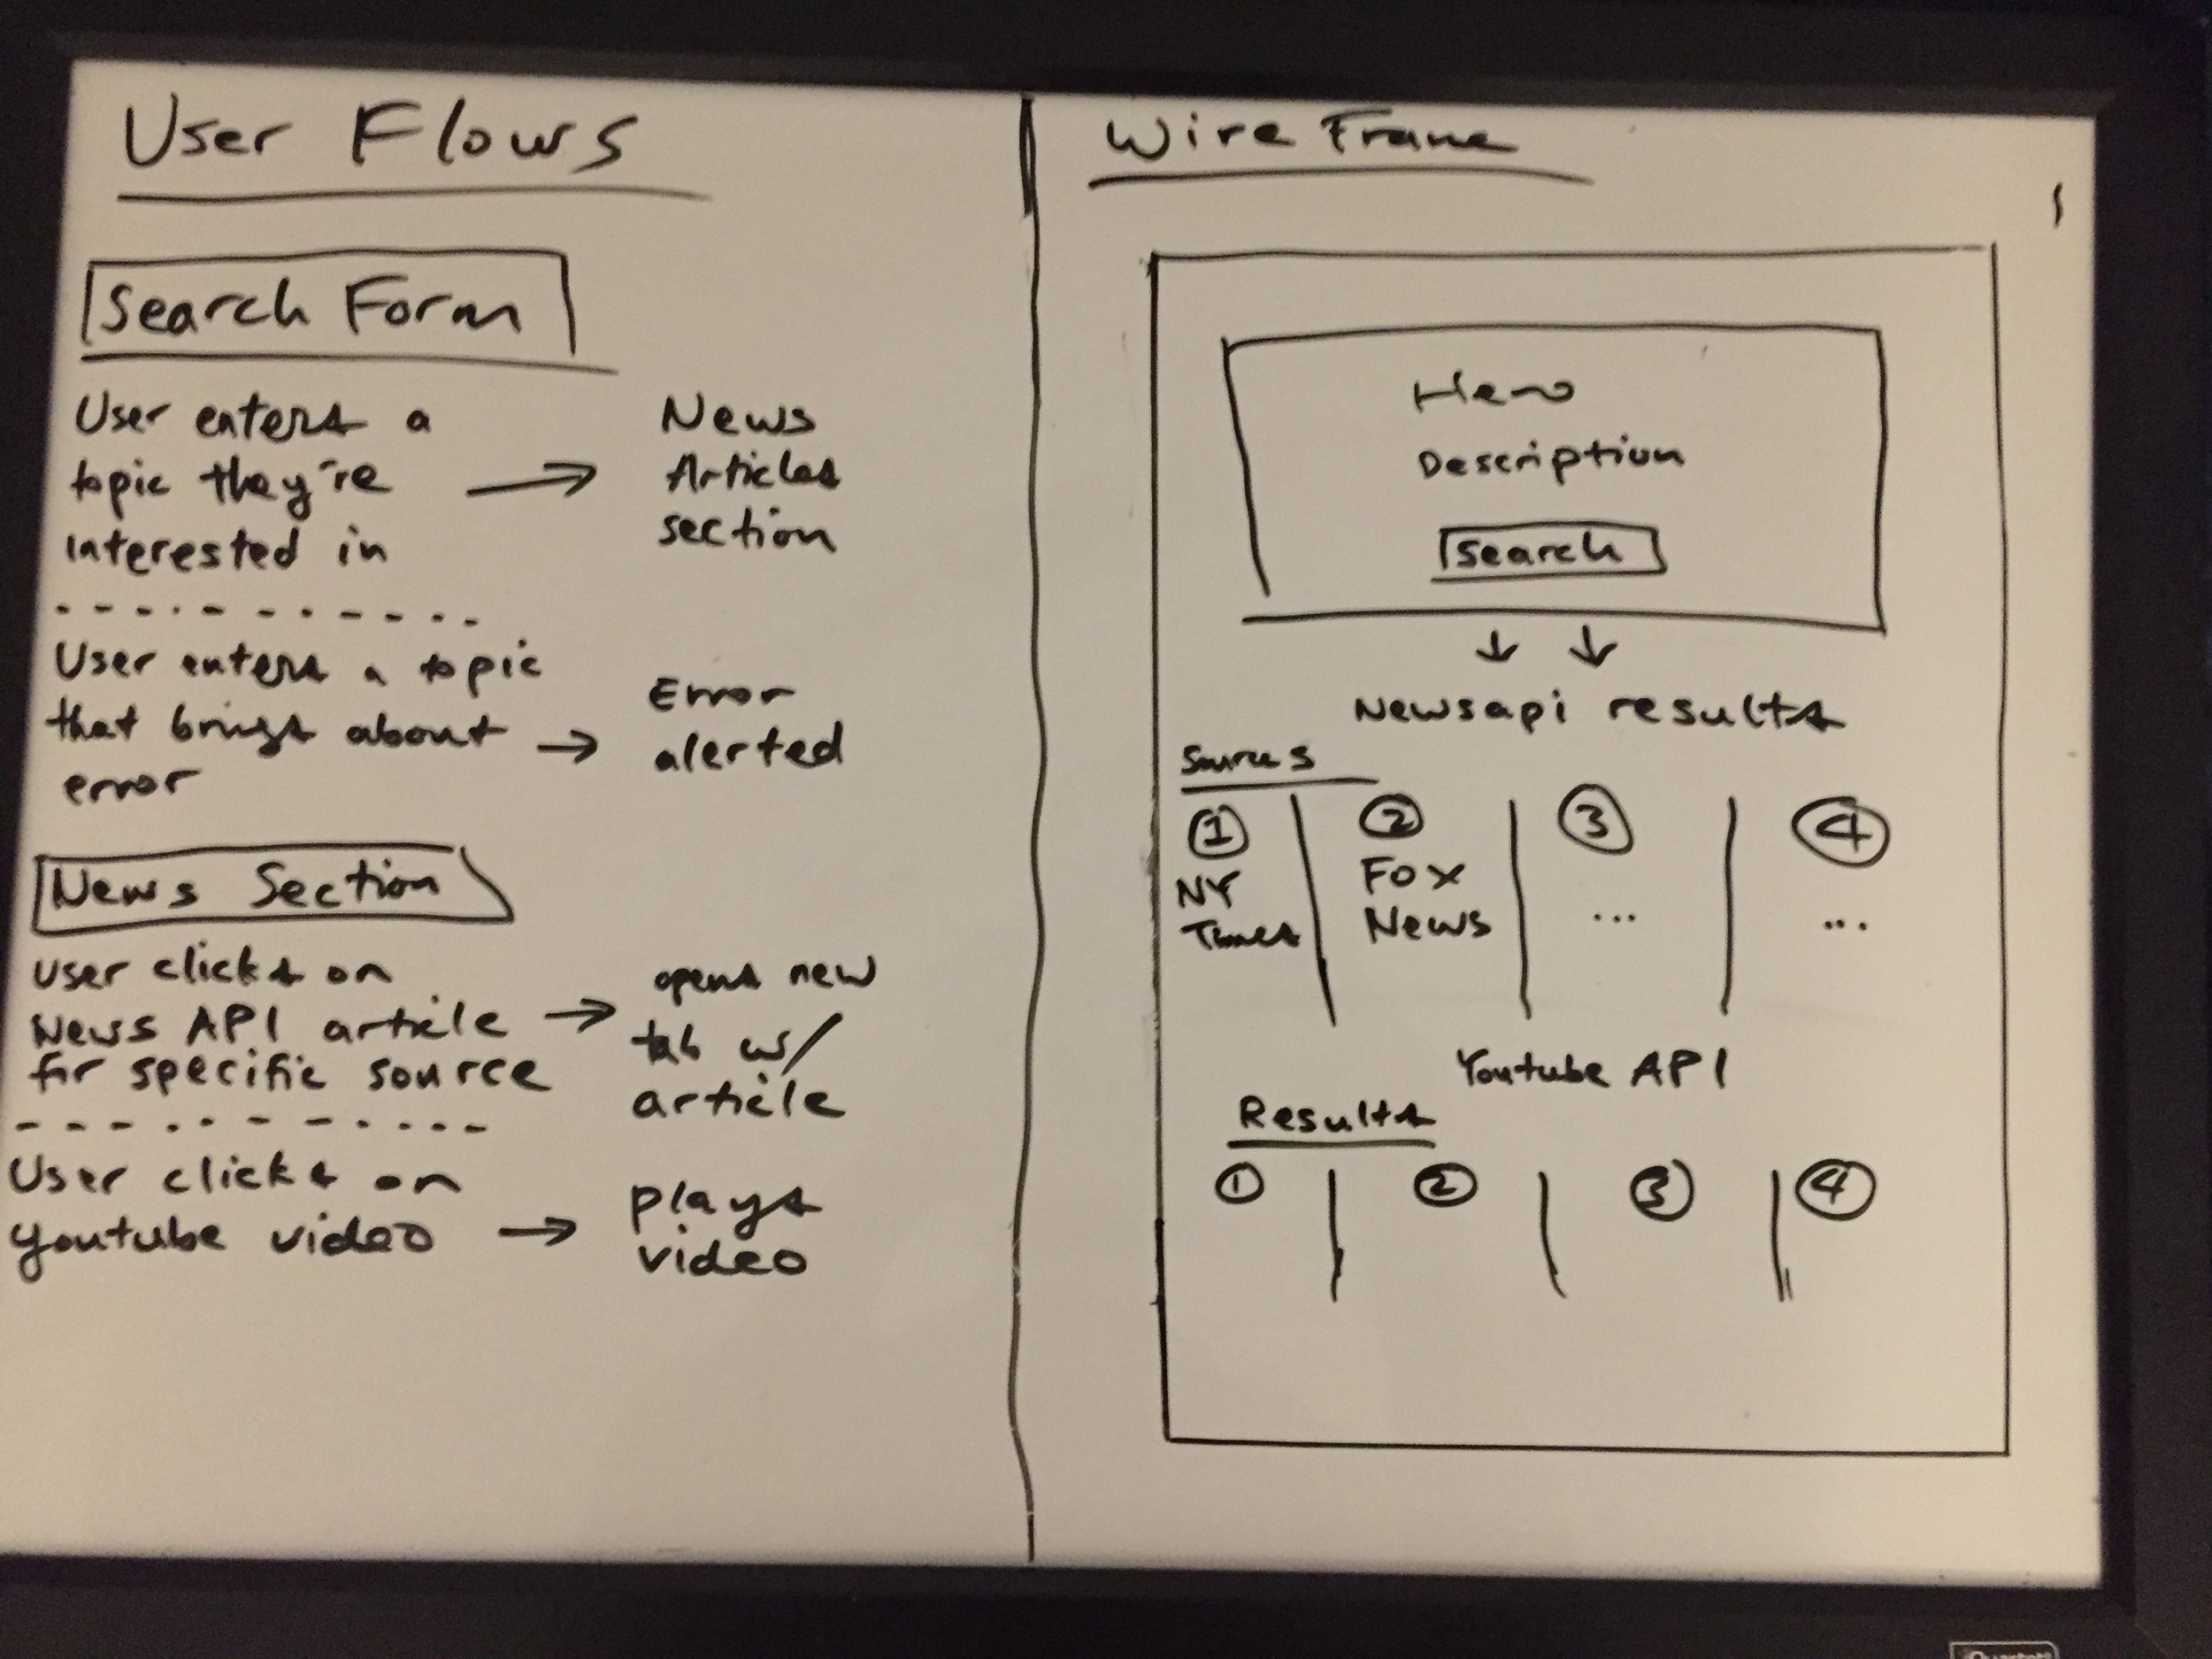 User Flows
Search Form
User enters a
topic they're
interested in
News
Articles
section
User enters a topic
that brings about
error
Error
alerted
News Section
User clicks on
News API article
for specific source
opens new
tab w/
article
User clicks on
Youtube video
plays
video
Wire Frame
Hero
Description
Search
Newsapi results
Sources
1
NY
Times
2
Fox
News
3
...
4
...
Youtube API
Results
1
2
3
4